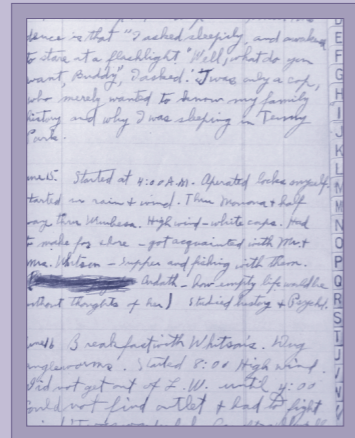 dence is that "I asked sleepily, and awoke
to stare at a flashlight. "Well, what do you
want, Buddy", I asked. 'Twas only a cop,
who merely wanted to know my family
history and why I was sleeping in Tenny
Park.
June 15 Started at 4:00 A.M. Operated locks myself.
started in rain & wind. Then Monona & half
way thru Waubesa. High wind - white caps. Had
to make for shore - got acquainted with Mr &
Mrs. Watson - supper and fishing with them.
Ardath - how empty life would be
without thoughts of her) Studied
June 16 Breakfast with Watsons. Dug
angleworms. Started 8:00 High wind.
Did not get out of L. W. until 4:00
could not find outlet & had to fight
D
E
F
G
H
I
J
K
L
M
N
O
P
Q
R
S
T